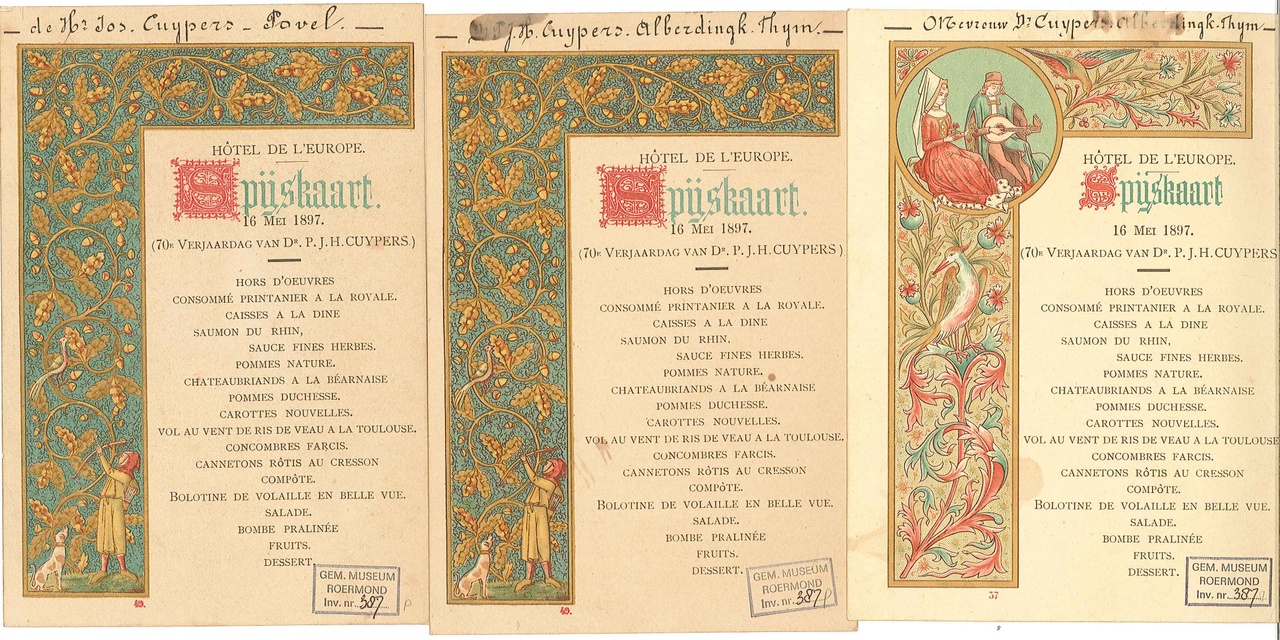 — de Hr Jos. Cuypers - Povel. —
HÔTEL DE L'EUROPE.
Spijskaart.
16 MEI 1897.
(70E VERJAARDAG VAN DR. P. J. H. CUYPERS.)
HORS D'OEUVRES
CONSOMMÉ PRINTANIER A LA ROYALE.
CAISSES A LA DINE
SAUMON DU RHIN,
SAUCE FINES HERBES.
POMMES NATURE.
CHATEAUBRIANDS A LA BÉARNAISE
POMMES DUCHESSE.
CAROTTES NOUVELLES.
VOL AU VENT DE RIS DE VEAU A LA TOULOUSE.
CONCOMBRES FARCIS.
CANNETONS RÔTIS AU CRESSON
COMPÔTE.
BOLOTINE DE VOLAILLE EN BELLE VUE.
SALADE.
BOMBE PRALINÉE
FRUITS.
DESSERT.
GEM. MUSEUM
ROERMOND
Inv. nr. 387 P
49.
— P. J. H. Cuypers. Alberdingk. Thym. —
HÔTEL DE L'EUROPE.
Spijskaart.
16 MEI 1897.
(70E VERJAARDAG VAN DR. P. J. H. CUYPERS.)
HORS D'OEUVRES
CONSOMMÉ PRINTANIER A LA ROYALE.
CAISSES A LA DINE
SAUMON DU RHIN,
SAUCE FINES HERBES.
POMMES NATURE.
CHATEAUBRIANDS A LA BÉARNAISE
POMMES DUCHESSE.
CAROTTES NOUVELLES.
VOL AU VENT DE RIS DE VEAU A LA TOULOUSE.
CONCOMBRES FARCIS.
CANNETONS RÔTIS AU CRESSON
COMPÔTE.
BOLOTINE DE VOLAILLE EN BELLE VUE.
SALADE.
BOMBE PRALINÉE
FRUITS.
DESSERT.
GEM. MUSEUM
ROERMOND
Inv. nr. 387 P
49.
— Mevrouw Dr Cuypers. Alberdingk. Thym —
HÔTEL DE L'EUROPE.
Spijskaart
16 MEI 1897.
(70E VERJAARDAG VAN DR. P. J. H. CUYPERS
HORS D'OEUVRES
CONSOMMÉ PRINTANIER A LA ROYALE.
CAISSES A LA DINE
SAUMON DU RHIN,
SAUCE FINES HERBES.
POMMES NATURE.
CHATEAUBRIANDS A LA BÉARNAISE
POMMES DUCHESSE.
CAROTTES NOUVELLES.
VOL AU VENT DE RIS DE VEAU A LA TOULOUSE
CONCOMBRES FARCIS.
CANNETONS RÔTIS AU CRESSON
COMPÔTE.
BOLOTINE DE VOLAILLE EN BELLE VUE.
SALADE.
BOMBE PRALINÉE
FRUITS.
DESSERT.
GEM. MUSEUM
ROERMOND
Inv. nr. 387 P
37